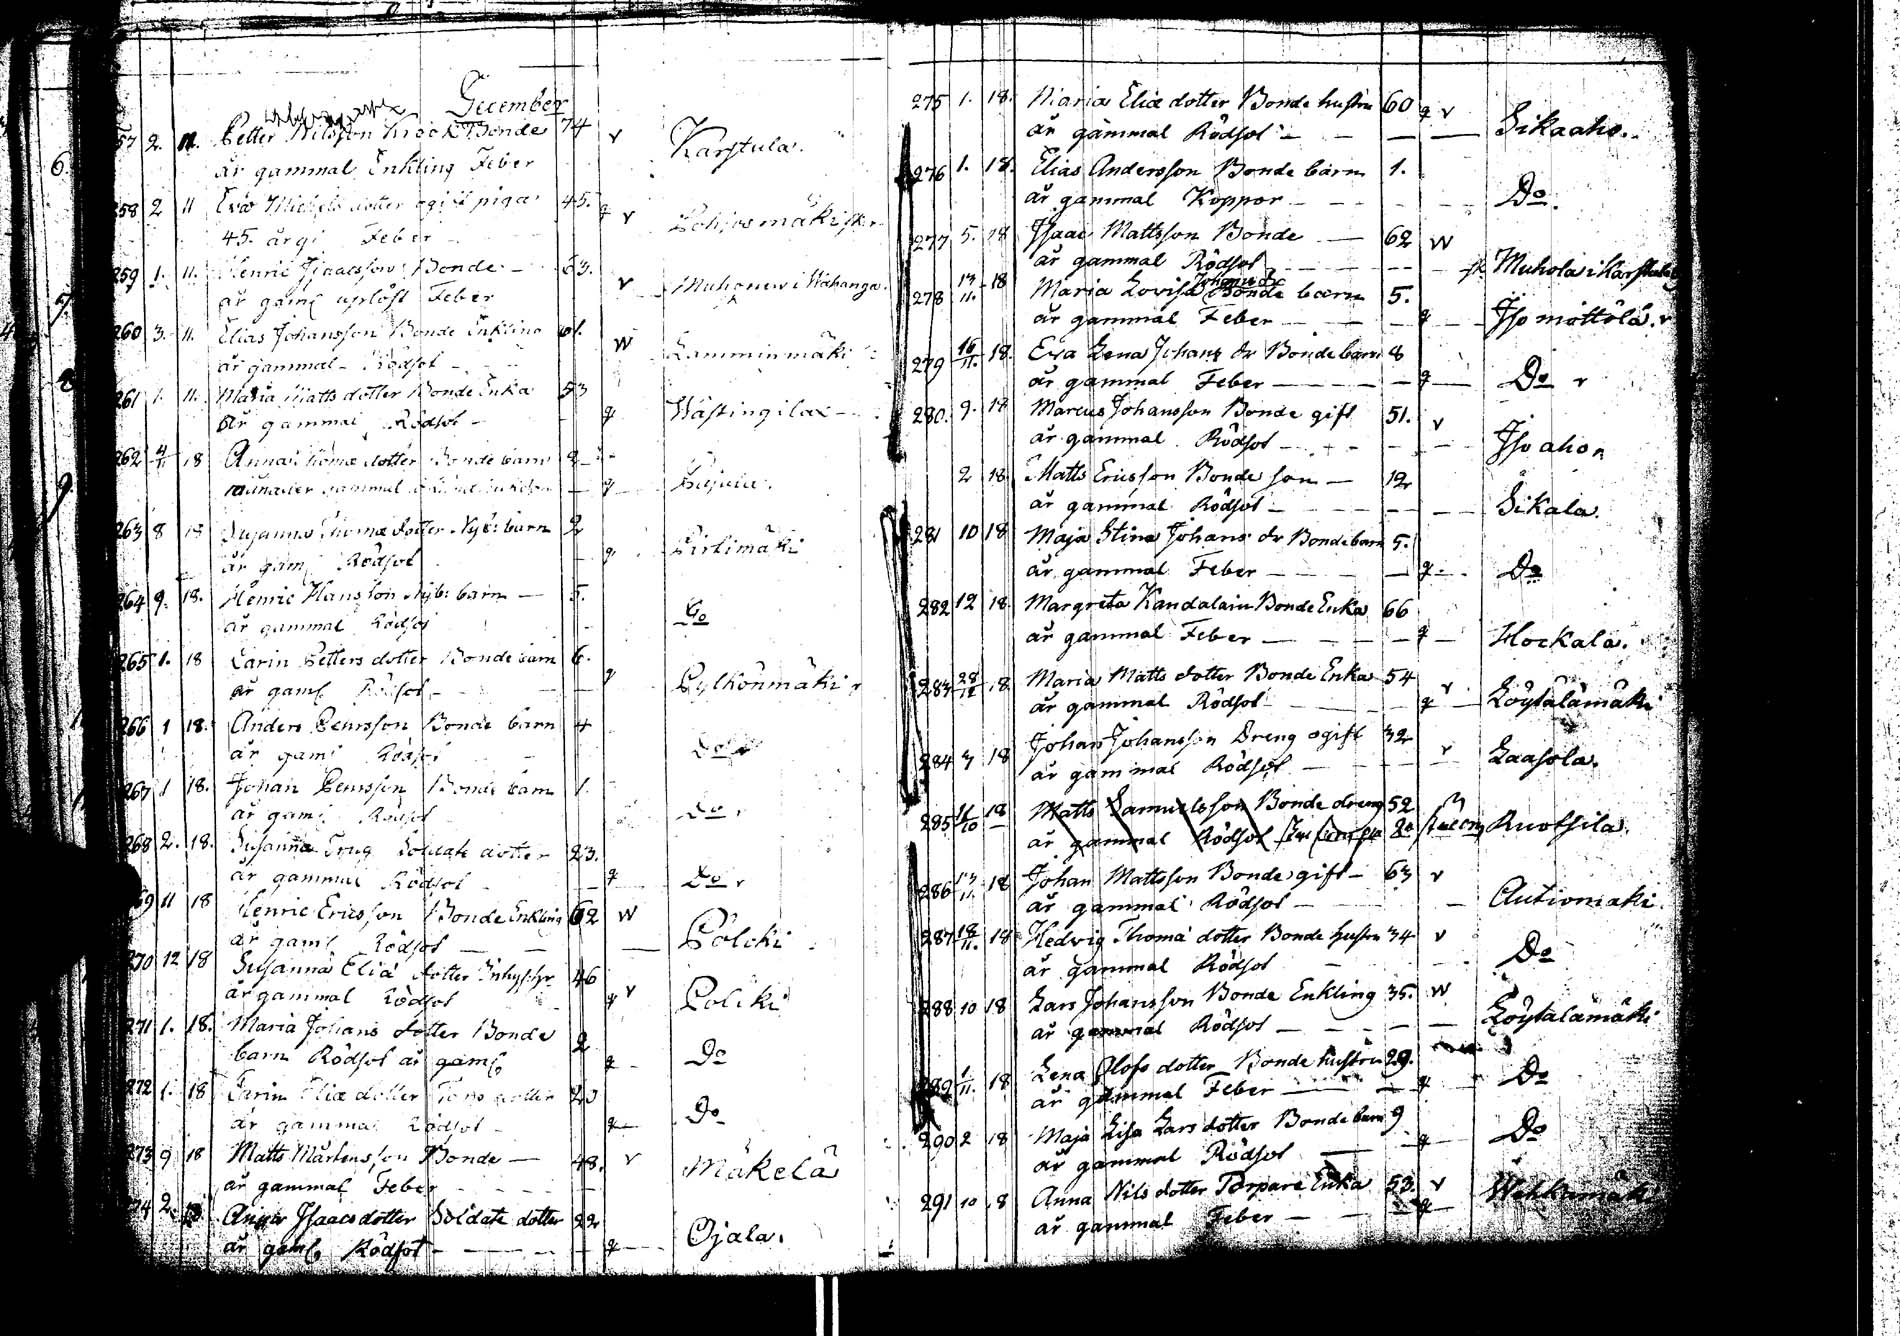 December
57 2. 11. Petter Nilsson Krook Bonde 74 v Karstula.
år gammal Enkling Feber
258 2 11 Eva Michels dotter ogift piga 45. q v
45. årgl Feber
259 1. 11. Henric Isaacsson Bonde - 63. v Muhonen i Wahanga.
år gaml uplöst Feber
260 3. 11. Elias Johansson Bonde Enkling 61. W Lamminmäki
år gammal - Rödsot
261 1. 11. Maria Matts dotter Bonde Enka 53
år gammal Rödsot - q Wästingilax -
262 4/11 18 Anna Thomæ dotter Bonde barn 2
månader gammal q
263 8 18 Susanna Thomæ dotter Nyb: barn 2
år gaml Rödsot q Pirtimäki
264 9. 18. Henric Hansson Nyb: barn - 5. Do
år gammal Rödsot
265 1. 18 Carin Petters dotter Bonde barn 6.
år gaml Rödsot - q Pylkönmäki
266 1 18. Anders Persson Bonde barn 4
år gaml Rödsot Do
267 1 18. Johan Persson Bonde barn 1.
år gaml Rödsot Do
268 2. 18. Susanna Trug Soldate dotter 23.
år gammal Rödsot q Do v
69 11 18 Henric Ericsson Bonde Enkling 62 W
år gaml Rödsot Pölcki
270 12 18 Susanna Eliæ dotter Inhyshr 46
år gammal Rödsot q v Polcki
271 1. 18. Maria Johans dotter Bonde 2
barn Rödsot år gaml q Do
272 1. 18 Carin Eliæ dotter dotter 20
år gammal Rödsot q Do
273 9 18 Matts Mårtensson Bonde - 48. v Mäkelä
år gammal Feber
274 2. 18 Anna Isaacs dotter Soldate dotter 22
år gaml Rödsot q Ojala.
275 1. 18. Maria Eliæ dotter Bonde hustru 60 q v
år gammal Rödsot Sikaaho.
276 1. 18. Elias Andersson Bonde barn 1.
år gammal Koppor Do.
277 5. 18 Isaac Mattsson Bonde 62 W
år gammal Rödsot Muhola i Karstula
278 13/11. 18 Maria Lovisa Johans Dr Bonde barn 5.
år gammal Feber q Iso möttölä. v
279 16/11. 18. Eva Lena Johans dr Bonde barn 8
år gammal Feber q Do v
280. 9. 18 Marcus Johansson Bonde gift 51. v
år gammal Rödsot Iso aho
2 18. Matts Ericsson Bonde son 12
år gammal Rödsot Sikala.
281 10 18 Maja Stina Johans dr Bonde barn 5.
år gammal Feber q Do
282 12 18. Margreta Kandalain Bonde Enka 66
år gammal Feber q Hockala.
283 28/12 18 Maria Matts dotter Bonde Enka 54
år gammal Rödsot q v Löytälämäki
284 3 18 Johan Johansson Dreng ogift 32
år gammal Rödsot v Laasola.
285 16/10 18 Matts Samuelsson Bonde dreng 52
år gammal Rödsot Ruotsila.
286 13/11. 18 Johan Mattsson Bonde gift - 63 v
år gammal Rödsot Autiomäki.
287 18/11. 18 Hedwig Thomæ dotter Bonde hustru 34 v
år gammal Rödsot Do
288 10 18 Lars Johansson Bonde Enkling 35. W
år gammal Rödsot Löytälämäki
289 1/11. 18 Lena Olofs dotter Bonde hustru 29.
år gammal Feber q Do
290 2 18 Maja Lisa Lars dotter Bonde barn 9
år gammal Rödsot q Do
291 10 18 Anna Nils dotter Torpare Enka 53. v
år gammal Feber q